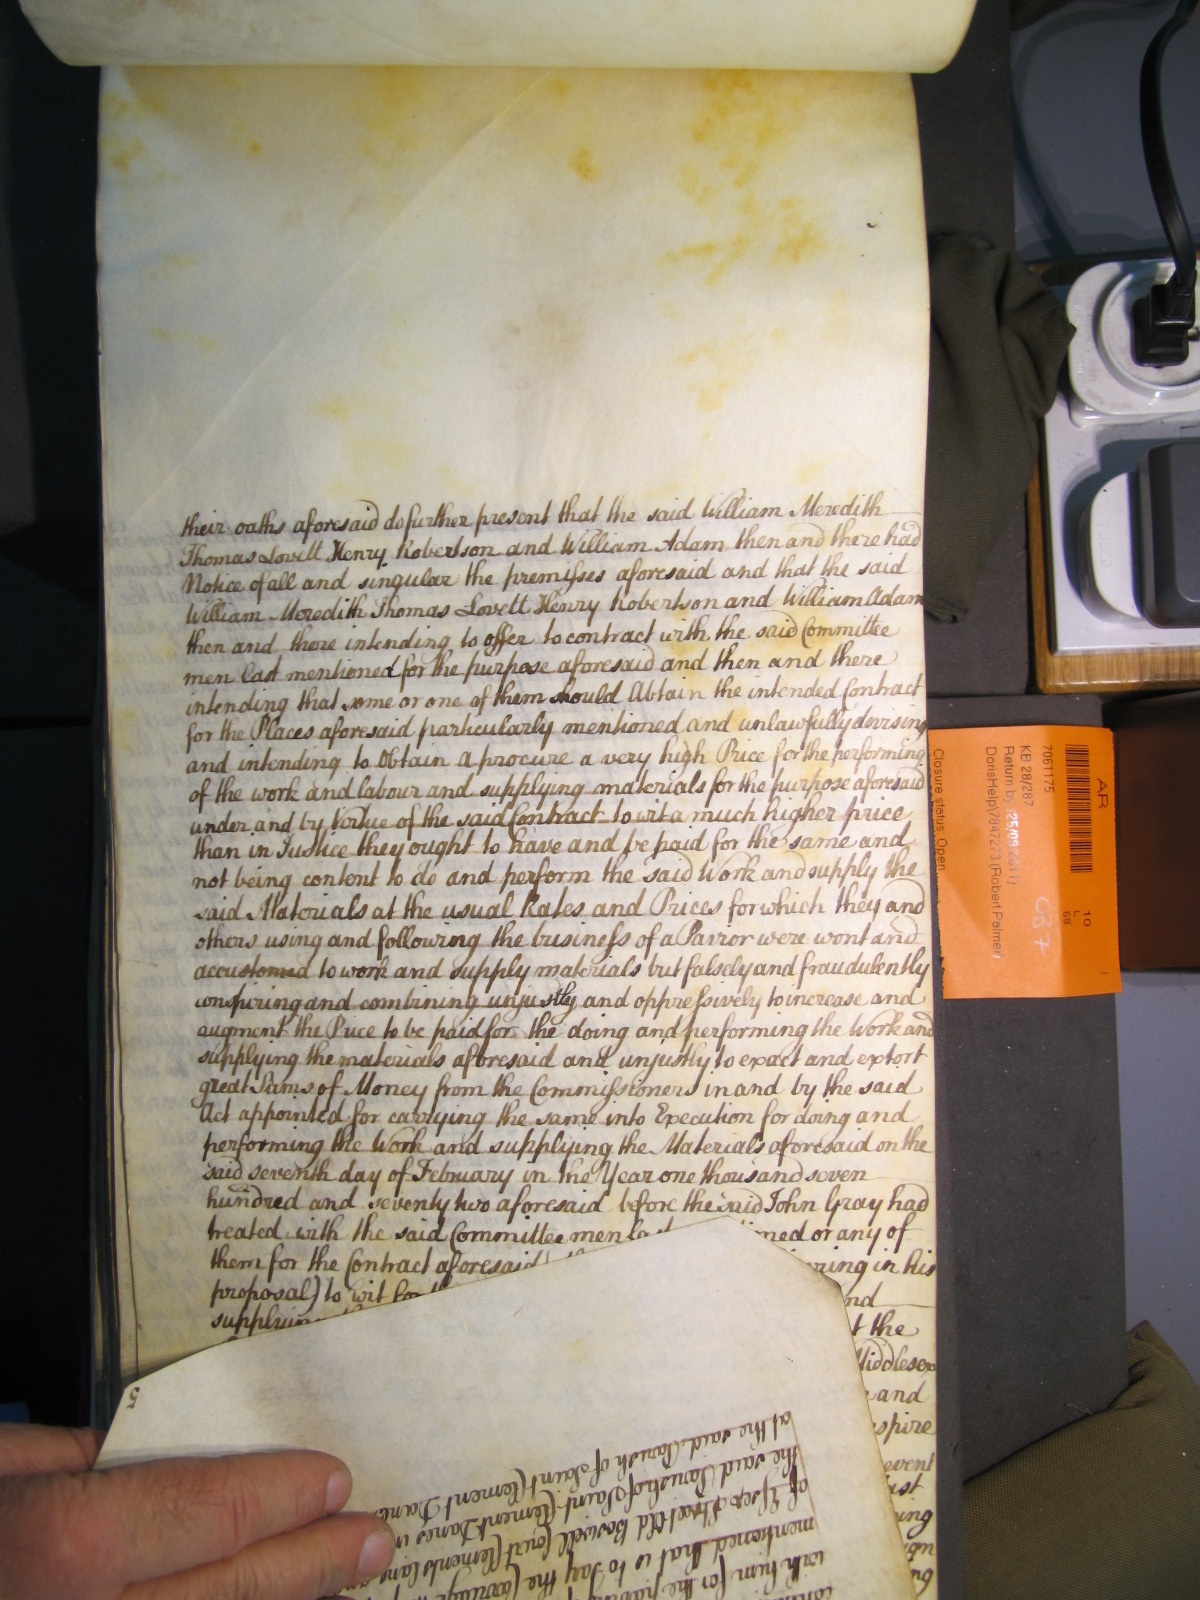 their oaths aforesaid do further present that the said William Meredith
Thomas Lovell Henry Robertson and William Adam then and there had
Notice of all and singular the premisses aforesaid and that the said
William Meredith Thomas Lovell Henry Robertson and William Adam
then and there intending to offer to contract with the said Committee
men last mentioned for the purpose aforesaid and then and there
intending that some or one of them should Obtain the intended Contract
for the Places aforesaid particularly mentioned and unlawfully devising
and intending to Obtain a procure a very high Price for the performing
of the work and labour and supplying materials for the purpose aforesaid
under and by Virtue of the said Contract to wit a much higher price
than in Justice they ought to have and be paid for the same and
not being content to do and perform the said Work and supply the
said Materials at the usual Rates and Prices for which they and
others using and following the business of a Pavior were wont and
accustomed to work and supply materials but falsely and fraudulently
conspiring and combining unjustly and oppressively to increase and
augment the Price to be paid for the doing and performing the Work and
supplying the materials aforesaid and unjustly to exact and extort
great Sums of Money from the Commissioners in and by the said
Act appointed for carrying the same into Execution for doing and
performing the Work and supplying the Materials aforesaid on the
said seventh day of February in the Year one thousand seven
hundred and seventy two aforesaid before the said John Gray had
treated with the said Committee men last tioned or any of
them for the Contract aforesaid ring in his
proposal) to wit for th nd
supplying t the
Middlesex
and
spire
event
ing
5
at the said Parish of Saint Clement Danes
the said Parish of Saint Clement Danes in
of Essex Street Old Boswell Court Clements Lane
mentioned that is to say the Carriage
with him for the paving
AR
7061175
KB 28/287
Return by (25/09/2011)
DorisHelp\7847273 (Robert Palmer)
Closure status: Open
10
L
68